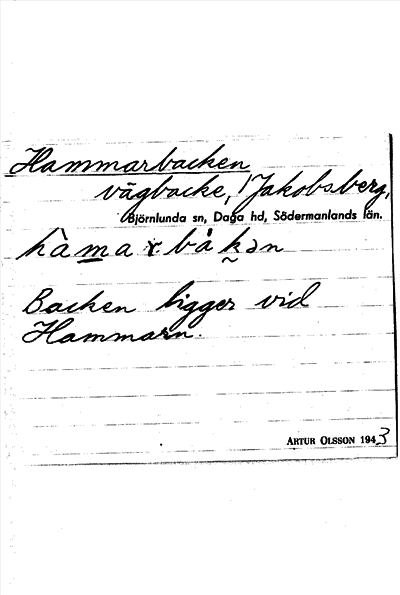 Hammarbacken
vägbacke, / Jakobsberg,
Björnlunda sn, Daga hd, Södermanlands län.
hàmarbåkən
Backen ligger vid
Hammarn.
ARTUR OLSSON 1943